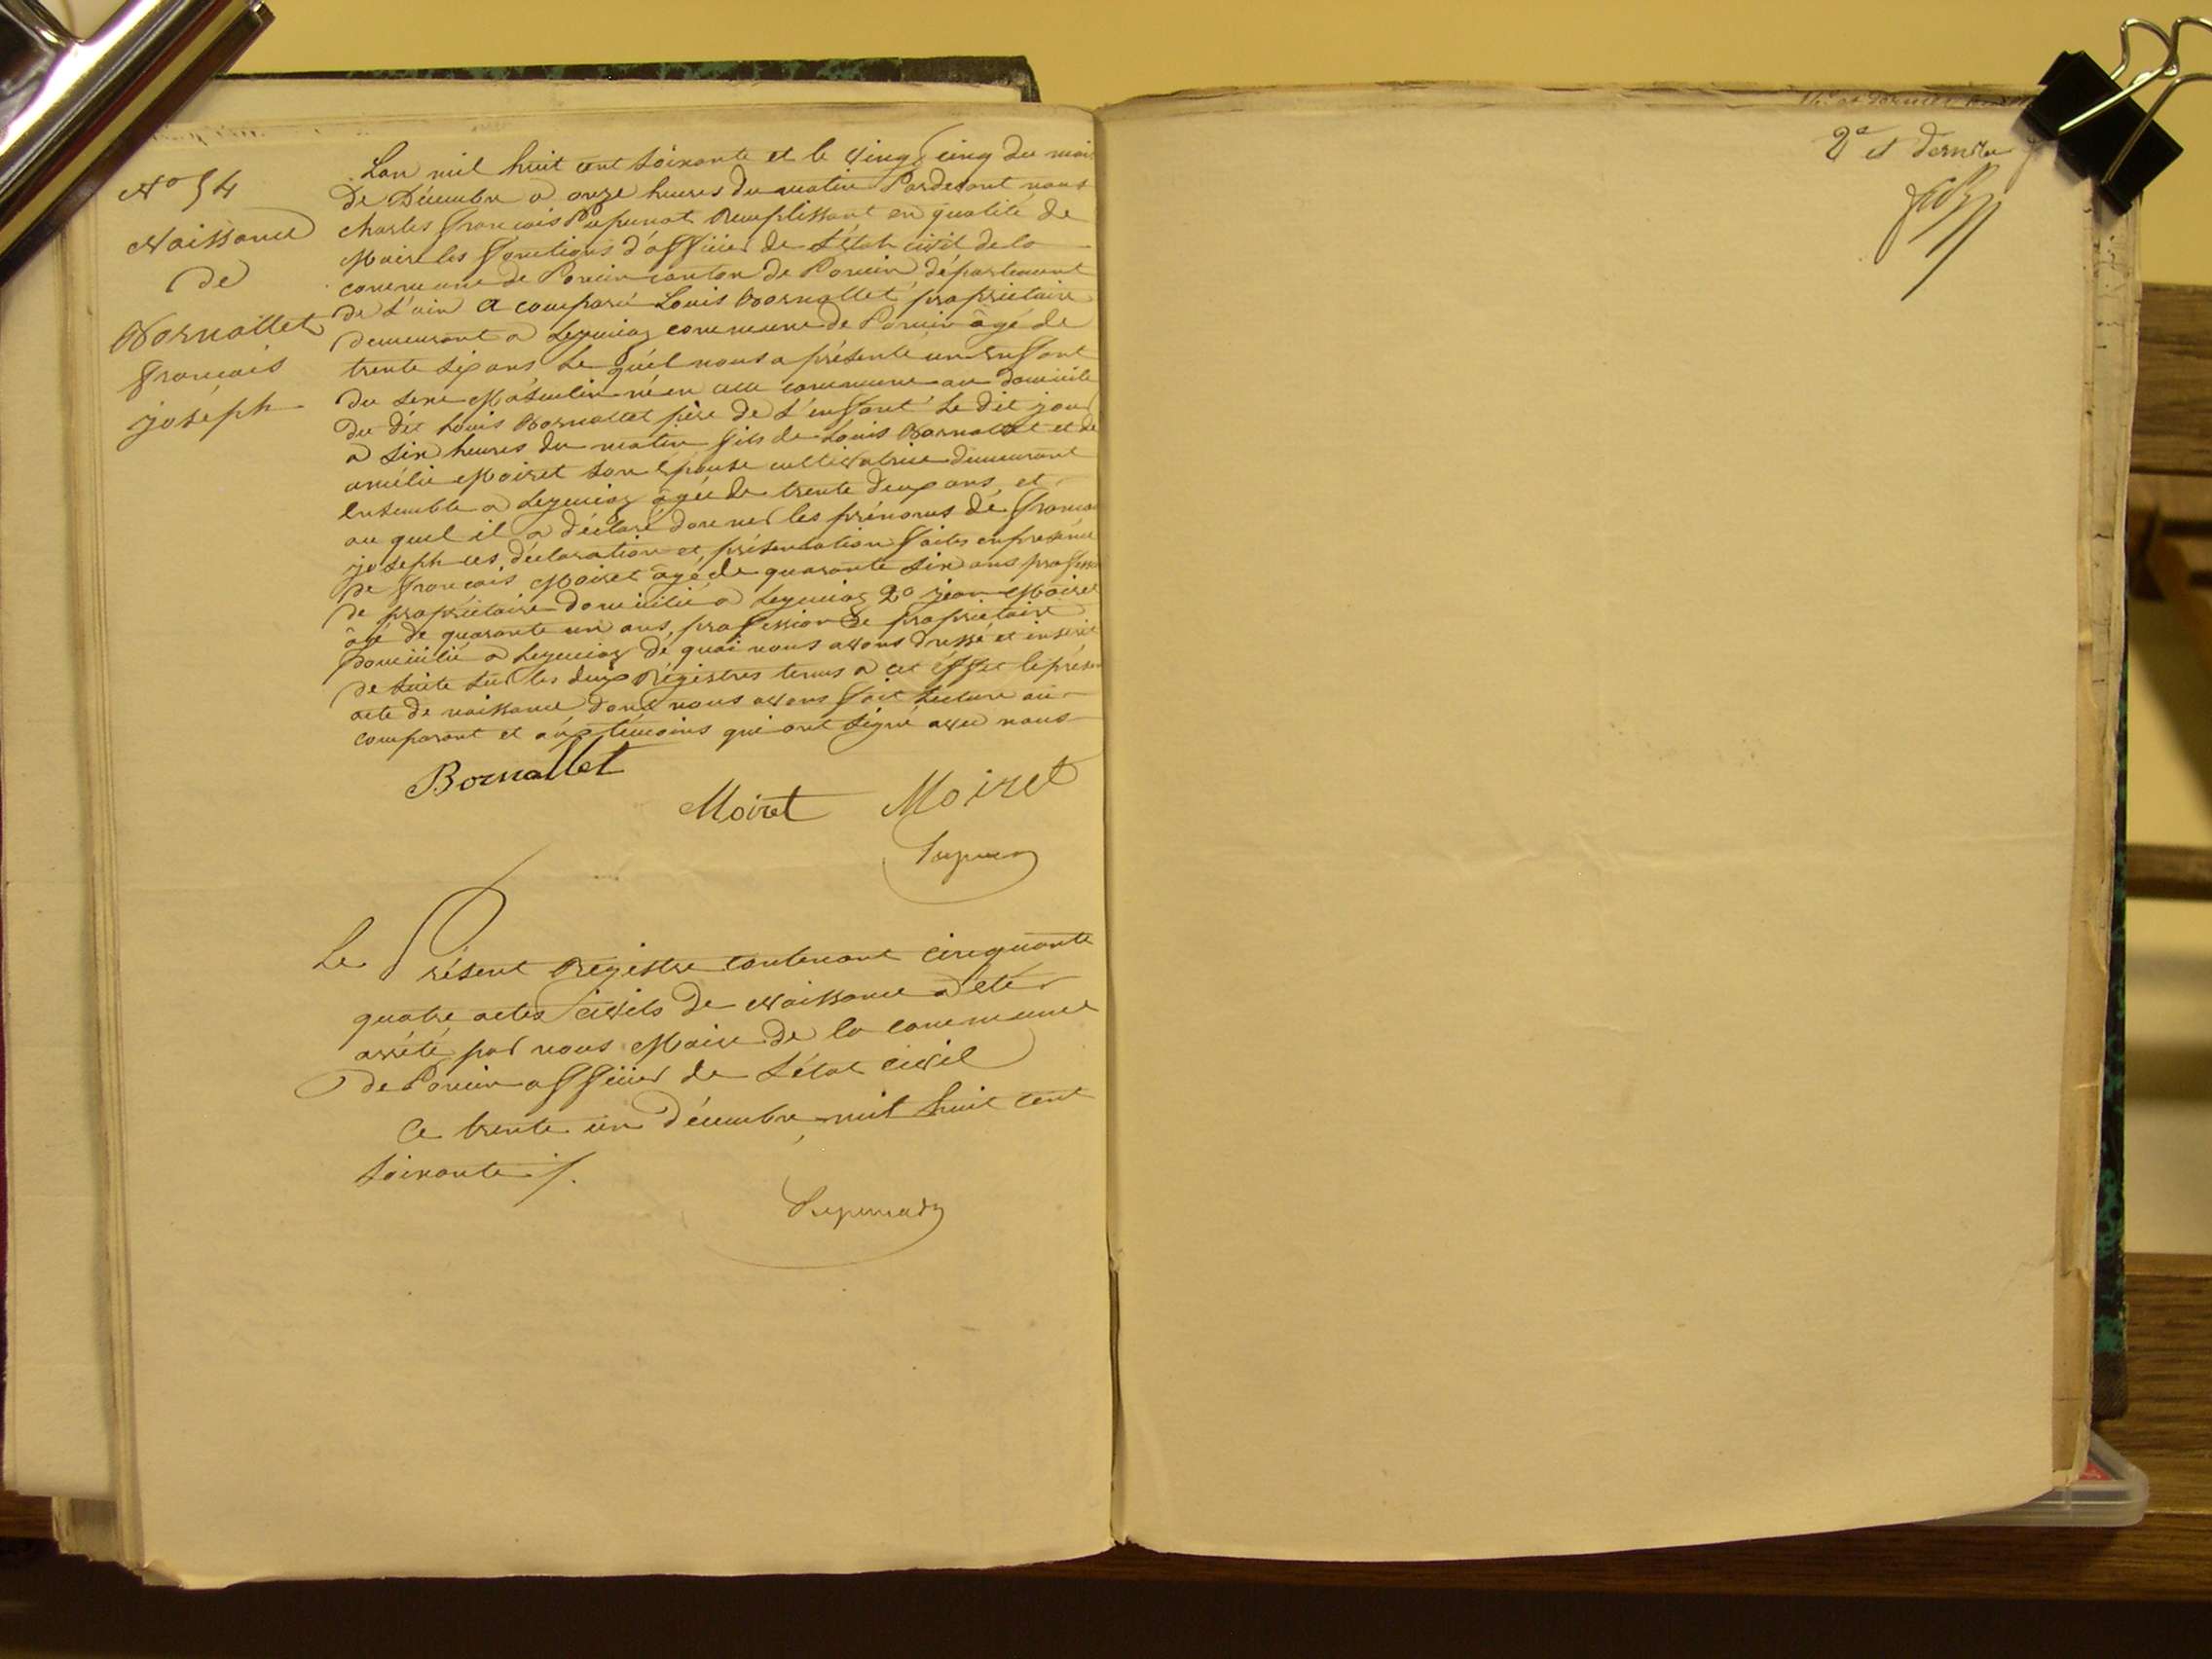 N° 54
Naissance
de
Bornallet
françois
joséph
Lan mil huit cent soixante et le vingt cinq du mois
de Décembre à onze heures du matin Pardevant nous
charles françois Pupunat Remplissant en qualité de
Maire les fonctions d'officier de L'état civil de la
commune de Poncin canton de Poncin département
de L'ain a comparu Louis Bornallet propriétaire
demeurant à Leymiaz commune de Poncin âgé de
trente six ans Le quel nous a présenté un enfant
du sexe Masculin né en cette commune au domicile
du dit Louis Bornallet père de L'enfant Le dit jour
à six heures du matin fils de Louis Bornallet et de
amélie Moiret son épouse cultivatrice demeurant
Ensemble à Leymiaz âgée de trente deux ans, et
au quel il a déclaré donner les prénoms de françois
joseph ces déclaration et présentation faites en présence
de françois Moiret âgé de quarante six ans profession
de propriétaire domicilié à Leymiaz 2° jean Moiret
âgé de quarante un ans, profession de propriétaire
domicilié à Leymiaz de quoi nous avons dressé et inscrit
de suite sur les deux Régistres tenus à cet éffet le présent
acte de naissance dont nous avons fait Lecture au
comparant et aux témoins qui ont signé avec nous
Bornallet
Moiret Moiret
Le Présent Régistre contenant cinquante
quatre actes civils de Naissance a été
arrété par nous Maire de la commune
de Poncin officier de L'état civil
Ce trente un Décembre mil huit cent
soixante /.
Pupunat
2e et dernier